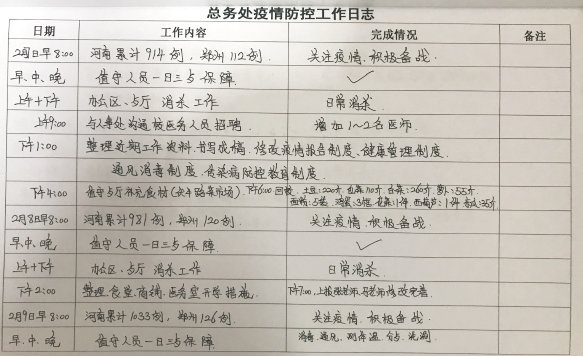 总务处疫情防控工作日志
日期 工作内容 完成情况 备注
2月7日早8:00 河南累计914例，郑州112例. 关注疫情.积极备战.
早、中、晚 值守人员一日三餐保障. ✓
上午+下午 办公区、餐厅 消杀工作 日常消杀.
上午9:00 与人事处沟通校医务人员招聘. 增加1～2名医师.
下午1:00 整理近期工作资料.书写疫情.修改疫情报告制度、健康管理制度.
通风消毒制度.传染病防控教育制度.
下午4:00 值守餐厅补充食材 下午6:00回校. 土豆:220斤 白菜:260斤
西葫芦:1件
2月8日早8:00 河南累计981例，郑州120例. 关注疫情.积极备战.
早、中、晚 值守人员一日三餐保障. ✓
上午+下午 办公区、餐厅 消杀工作 日常消杀.
下午2:00 整理.食堂.商铺.医务室开学措施. 下午7:00.上报 老师.修改完善.
2月9日早8:00 河南累计1033例，郑州126例. 关注疫情.积极备战.
早、中、晚 值守人员一日三餐保障 消毒.通风.测体温.分餐.洗漱.